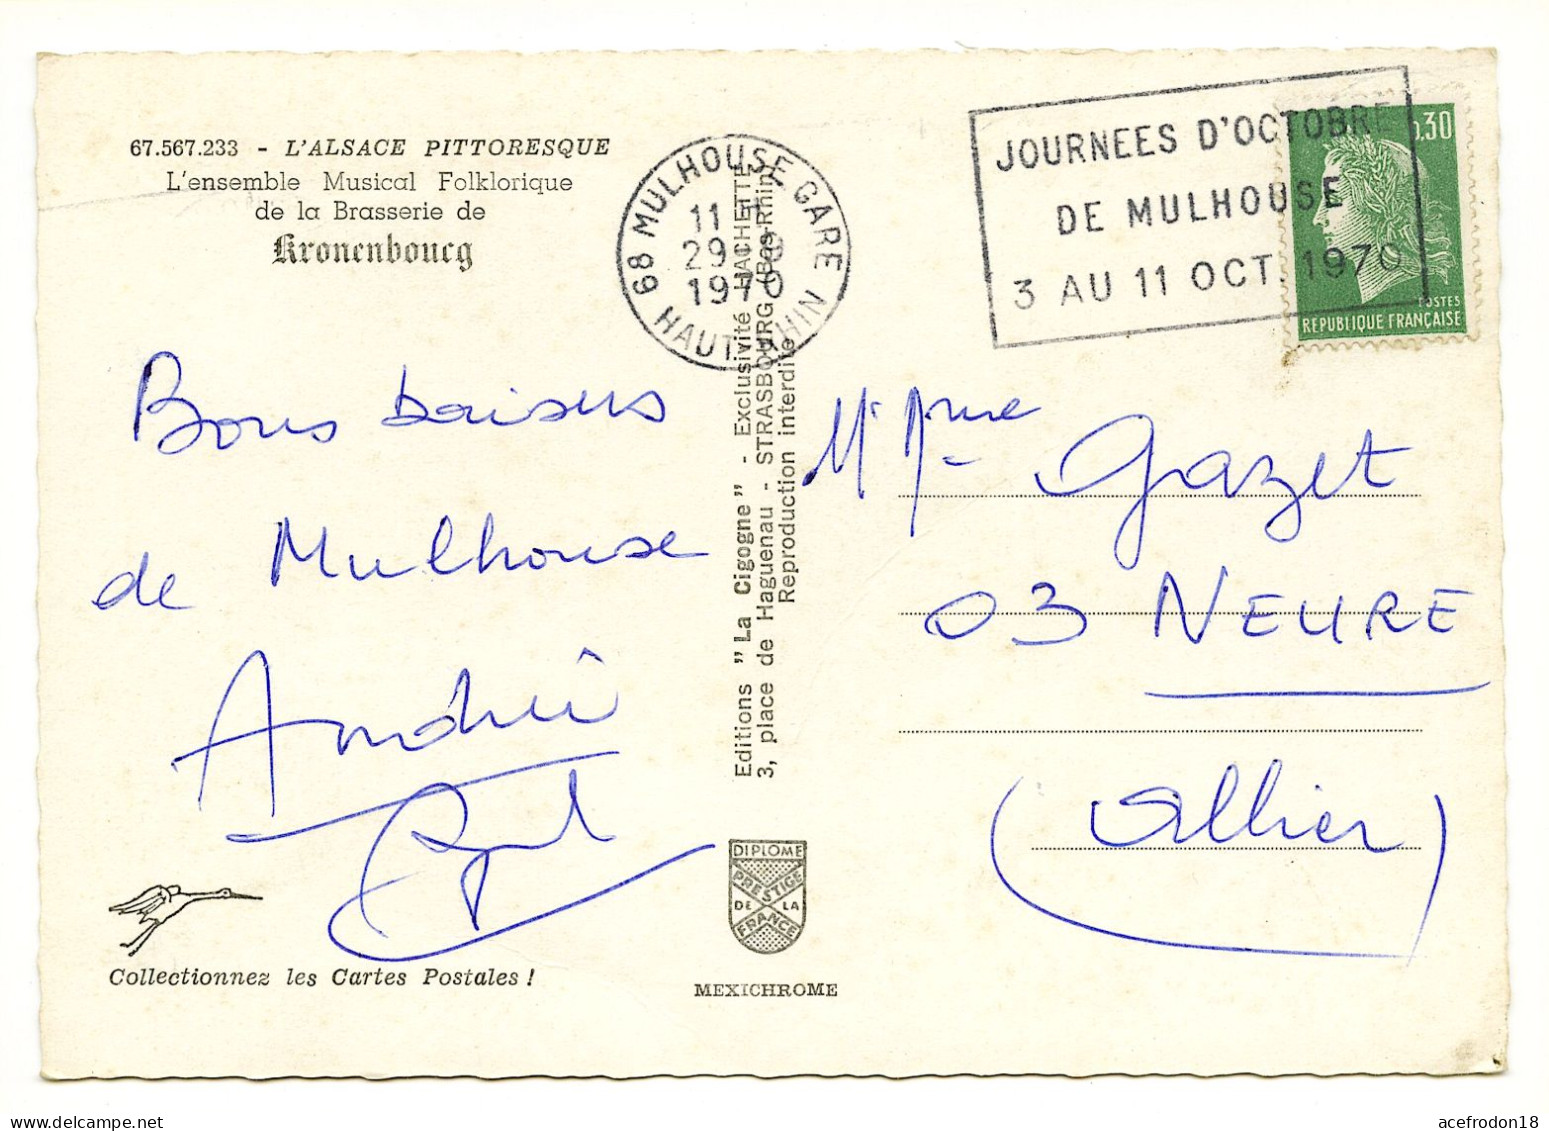 67.567.233 - L'ALSACE PITTORESQUE
L'ensemble Musical Folklorique
de la Brasserie de
Kronenbourg
68 MULHOUSE GARE HAUT-RHIN
11 H
29-9
1970
JOURNEES D'OCTOBRE
DE MULHOUSE
3 AU 11 OCT. 1970
0.30
POSTES
REPUBLIQUE FRANÇAISE
Bons baisers
de Mulhouse
Editions "La Cigogne" - Exclusivité HACHETTE
3, place de Haguenau - STRASBOURG (Bas-Rhin)
Reproduction interdite
Mr Mme Gazet
03 NEURE
(Allier)
DIPLOME
PRESTIGE
DE LA
FRANCE
Collectionnez les Cartes Postales !
MEXICHROME
acefrodon18